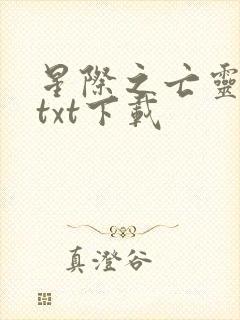 星際之亡靈
txt下載
真澄谷